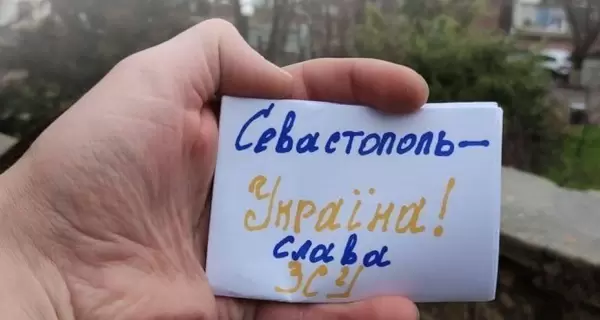 Севастополь—
Україна!
слава
ЗСУ